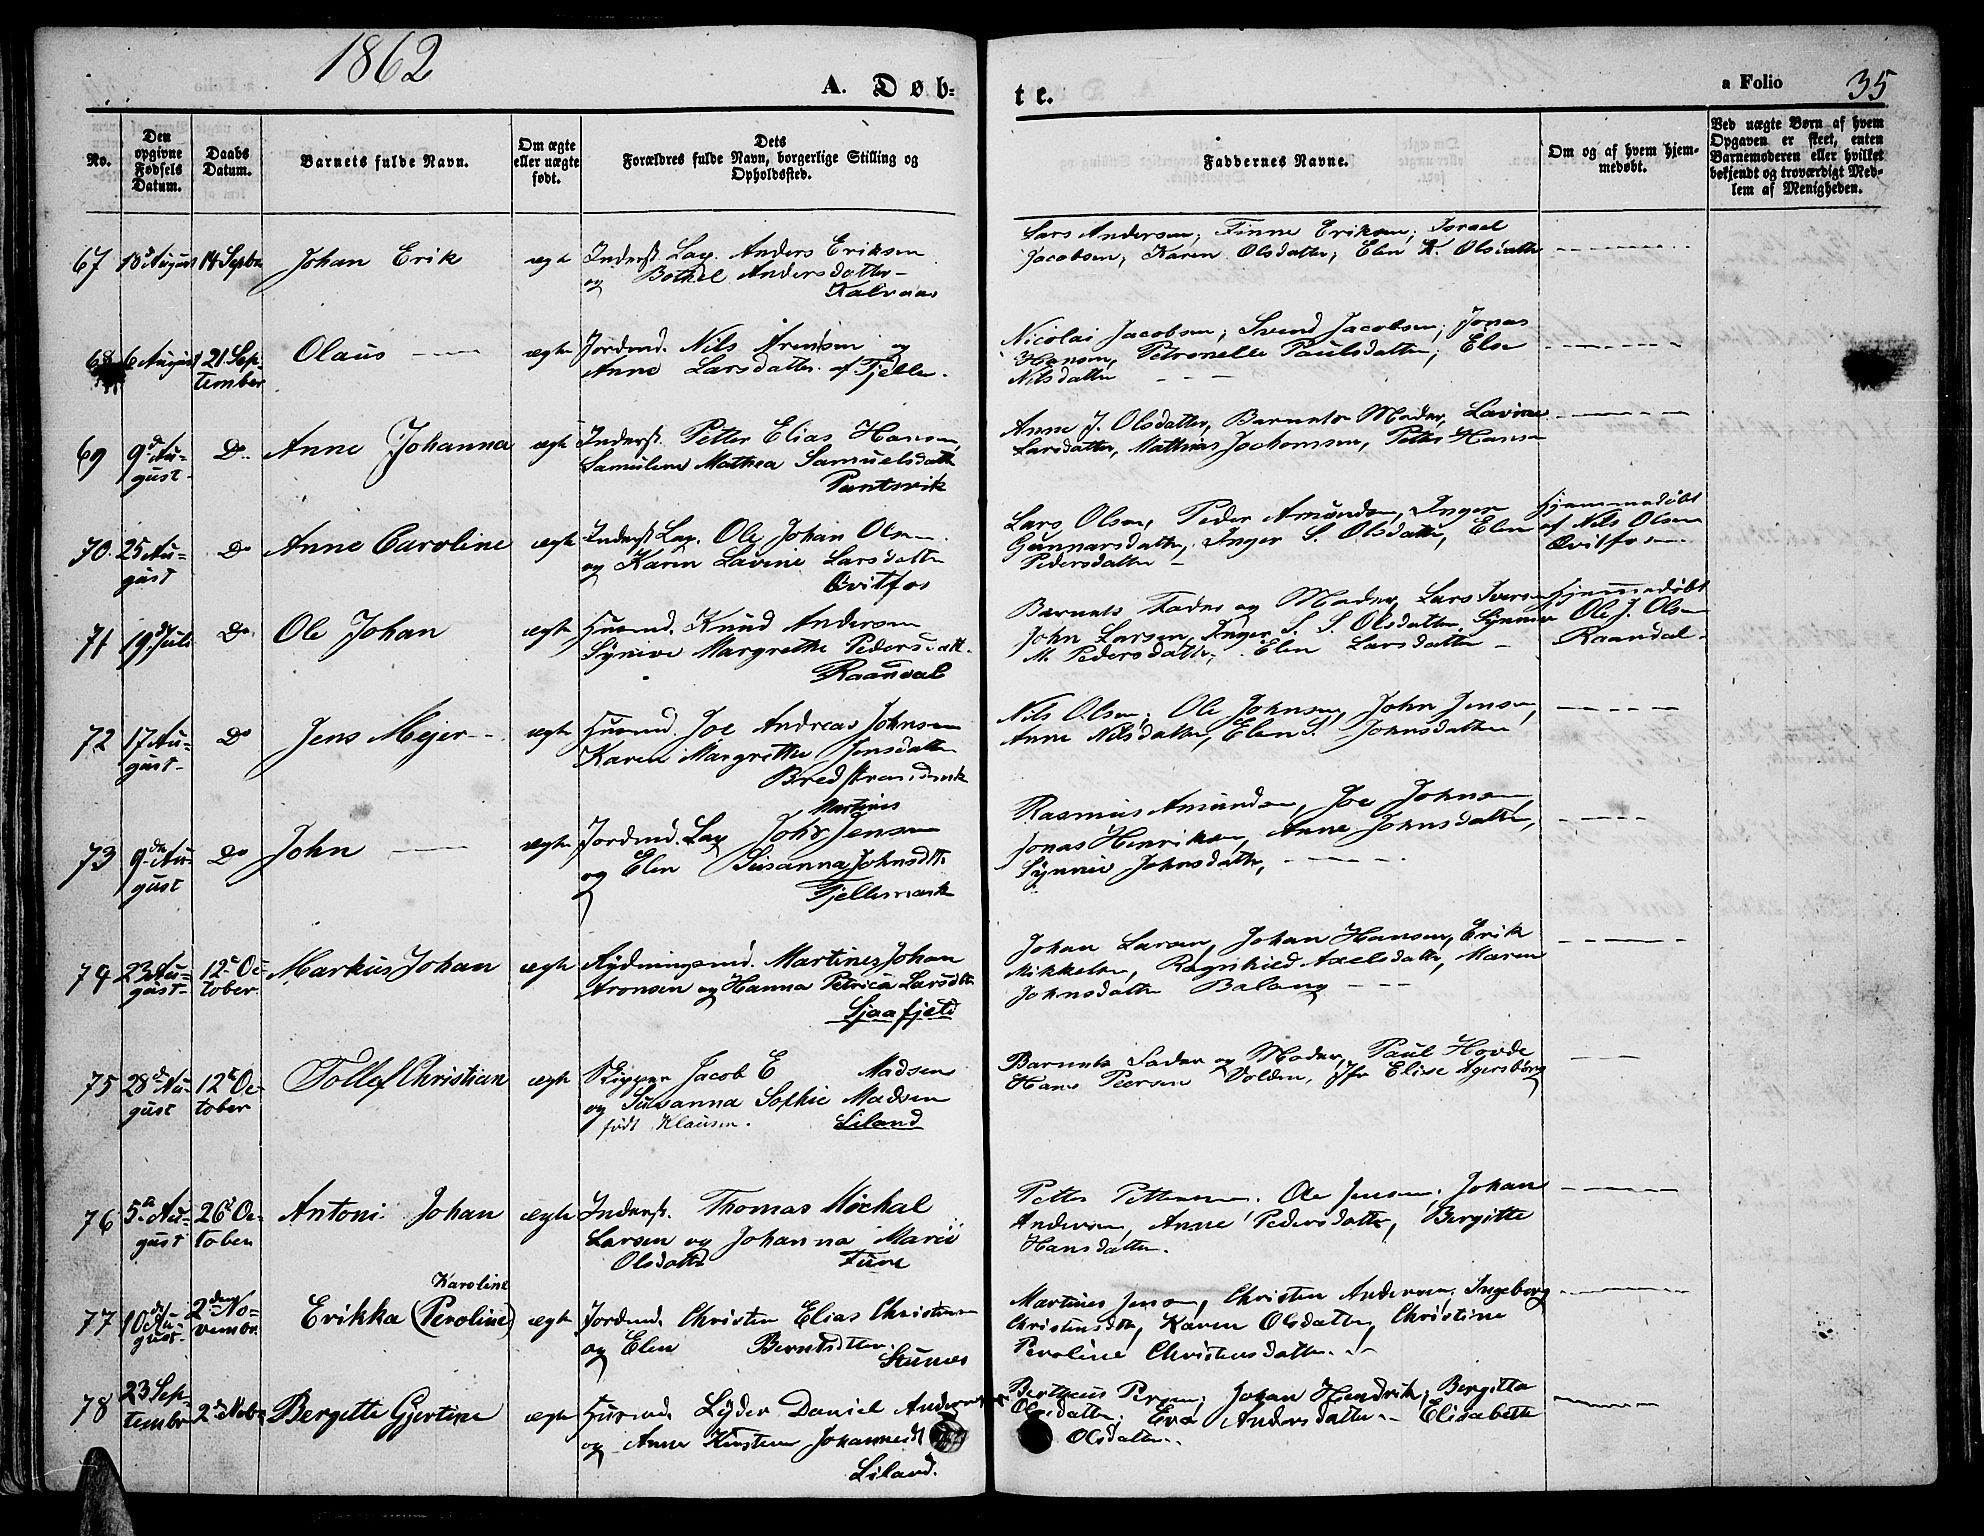 1862
A. Døb=
te.
a Folio 35
No.
Den opgivne Fødsels Datum.
Daabs Datum.
Barnets fulde Navn.
Om ægte eller uægte født.
Dets Forældres fulde Navn, borgerlige Stilling og Opholdssted.
Faddernes Navne.
Om og af hvem hjem-medøbt.
Ved uægte Børn af hvem Opgaven er skeet, enten Barnemoderen eller hvilket bekjendt og troværdigt Med-lem af Menigheden.
67 18 August 14 Septbr Johan Erik ægte Inderst. Lap. Anders Eriksen
og Bothel Andersdatter
Kalvaas
Lars Andersen; Finne Eriksen; Israel
Jacobsen; Karen Olsdatter; Elen K. Olsdatter
68 6 August 21 Sep-tember Olaus ægte Jordmd. Nils Arentsen og
Anne Larsdatter af Fjelle.
Nicolai Jacobsen; Svend Jacobsen; Jonas
Hansen, Petronelle Paulsdatter; Else
Nilsdatter
69 9d Au-gust Do. Anne Johanna ægte Inderst. Petter Elias Hansen,
Samuline Mathea Samuelsdatter
Puntsvik
Anne J. Olsdatter, Barnets Moder, Lavine
Larsdatter, Mathias Jochomsen, Petter Hansen
70. 25 Au-gust Do Anne Caroline ægte Inderst Lap. Ole Johan Olsen
og Karen Lavine Larsdatter
Qvitfos
Lars Olsen, Peder Amundsen, Inger
Gunnarsdatter, Inger S. Olsdatter, Elen
Pedersdatter
Hjemmedøbt
af Nils Olsen
Qvitfos
71 19d Juli Do. Ole Johan ægte Husmd. Knud Andersen
Syneve Margrethe Pedersdatt.
Raandal
Barnets Fader og Moder, Lars Iversen
John Larsen, Inger S. S. Olsdatter, Synnev
M. Pedersdatter, Elen Larsdatter
Hjemmedøbt
Ole J. Olsen
Raandal
72 17 Au-gust Do Jens Mejer ægte Husmd. Joe Andreas Johnsen
Karen Margrethe Jensdatter
Bredstrandmk
Nils Olsen; Ole Johnsen, John Jensen,
Anne Nilsdatter, Elen S. Johnsdatter
73 9de Au-gust Do John ægte Jordmd. Lap John Martines Jensen
og Elen Susanna Johnsdtr
Fjellemark
Rasmus Amundsen, Joe Johnsen,
Jonas Henriksen, Anne Johnsdatter,
Synnev Johnsdatter,
74 23 Au-gust 12t Oc-tober Markus Johan ægte Rydningsmd. Martines Johan
Aronsen og Hanna Petrica Larsdtr
Sjaafjeld
Johan Larsen, Johan Hansen, Erik
Mikkelsen, Ragnhild Axelsdatter, Maren
Johnsdatter Balang
75 28d Au-gust 12t Oc-tober Tollef Christian ægte Skipper Jacob E Madsen
og Susanna Sophie Madsen
født Klausen. Liland
Barnets Fader og Moder, Paul Hovde
Hans Peersen Volden, Jfr Elise Agersborg
76 5te Au-gust 26t Oc-tober Antoni Johan ægte Inderst. Thomas Mochal
Larsen og Johanna Marie
Olsdatter Fune
Petter Pettersen, Ole Jensen, Johan
Andersen, Anne Pedersdatter, Bergitte
Hansdatter.
77 10de Au-gust 2den No-vembr. Erikka (Peroline) Karoline ægte Jordmd. Christen Elias Christensen
og Elen Berntsdtter
Stunes
Martines Jensen, Christen Andersen, Ingeborg
Christensdtr, Karen Olsdatter, Christine
Peroline Christensdatter.
78 23 Sep-tembr 2d Nobr Bergette Gjertine ægte Husmd. Lyder Daniel Andersen
og Anne Kirstine Johannesdt
Liland.
Bertheus Persen; Johan Hendrik; Bergitta
Olsdatter; Eva Andersdatter. Elisabeth
Olsdatter.